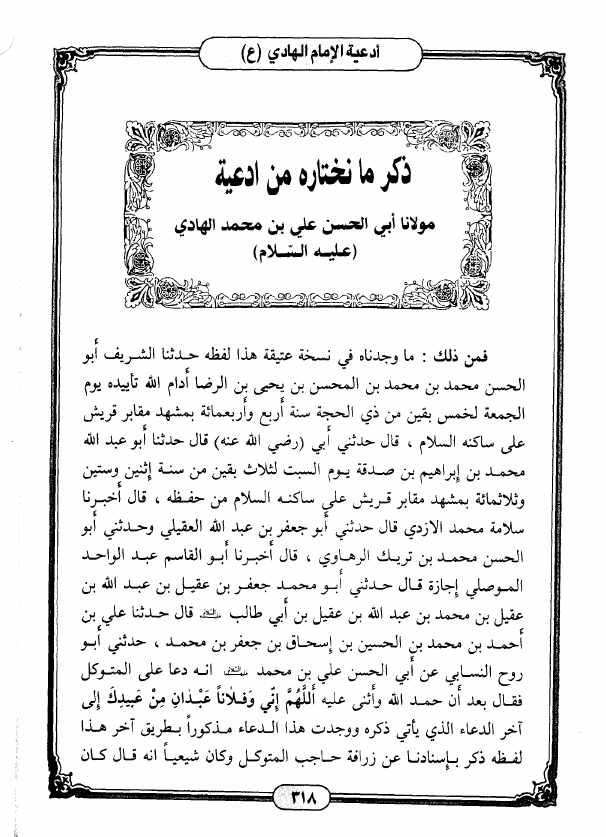 أدعية الإمام الهادي (ع)
ذكر ما نختاره من ادعية
مولانا أبي الحسن علي بن محمد الهادي
(عليه السّلام)
فمن ذلك : ما وجدناه في نسخة عتيقة هذا لفظه حدثنا الشريف أبو
الحسن محمد بن محمد بن المحسن بن يحيى بن الرضا أدام الله تأييده يوم
الجمعة لخمس بقين من ذي الحجة سنة أربع وأربعمائة بمشهد مقابر قريش
على ساكنه السلام ، قال حدثني أبي (رضي الله عنه) قال حدثنا أبو عبد الله
محمد بن إبراهيم بن صدقة يوم السبت لثلاث بقين من سنة إثنين وستين
وثلاثمائة بمشهد مقابر قريش على ساكنه السلام من حفظه ، قال أخبرنا
سلامة محمد الازدي قال حدثني أبو جعفر بن عبد الله العقيلي وحدثني أبو
الحسن محمد بن تريك الرهاوي ، قال أخبرنا أبو القاسم عبد الواحد
الموصلي إجازة قال حدثني أبو محمد جعفر بن عقيل بن عبد الله بن
عقيل بن محمد بن عبد الله بن عقيل بن أبي طالب قال حدثنا علي بن
أحمد بن محمد بن الحسين بن إسحاق بن جعفر بن محمد ، حدثني أبو
روح النسابي عن أبي الحسن علي بن محمد انه دعا على المتوكل
فقال بعد أن حمد الله وأثنى عليه أَللَّهُمَّ إِنِّي وَفلاناً عَبْدانِ مِنْ عَبِيدِكَ إلى
آخر الدعاء الذي يأتي ذكره ووجدت هذا الدعاء مذكوراً بطريق آخر هذا
لفظه ذكر بإسنادنا عن زرافة حاجب المتوكل وكان شيعياً انه قال كان
٣١٨